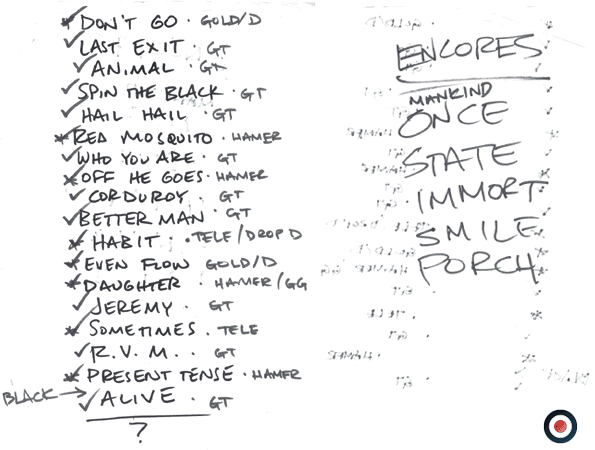 * DON'T GO · GOLD/D
✓ LAST EXIT · GT
✓ ANIMAL · GT
✓ SPIN THE BLACK · GT
✓ HAIL HAIL · GT
* RED MOSQUITO · HAMER
✓ WHO YOU ARE · GT
* OFF HE GOES · HAMER
✓ CORDUROY · GT
✓ BETTER MAN · GT
* HABIT · TELE/DROP D
* EVEN FLOW GOLD/D
* DAUGHTER · HAMER/GG
✓ JEREMY · GT
* SOMETIMES · TELE
✓ R.V.M. · GT
* PRESENT TENSE · HAMER
BLACK → ✓ ALIVE · GT
?
ENCORES
MANKIND
ONCE
STATE
IMMORT.
SMILE
PORCH